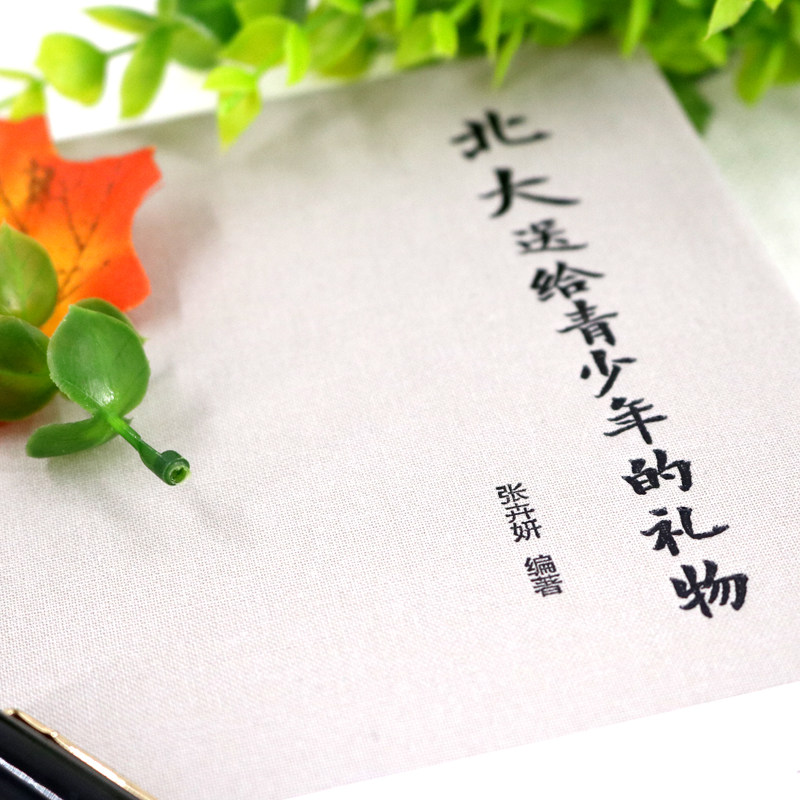 北大送给青少年的礼物
张卉妍 编著